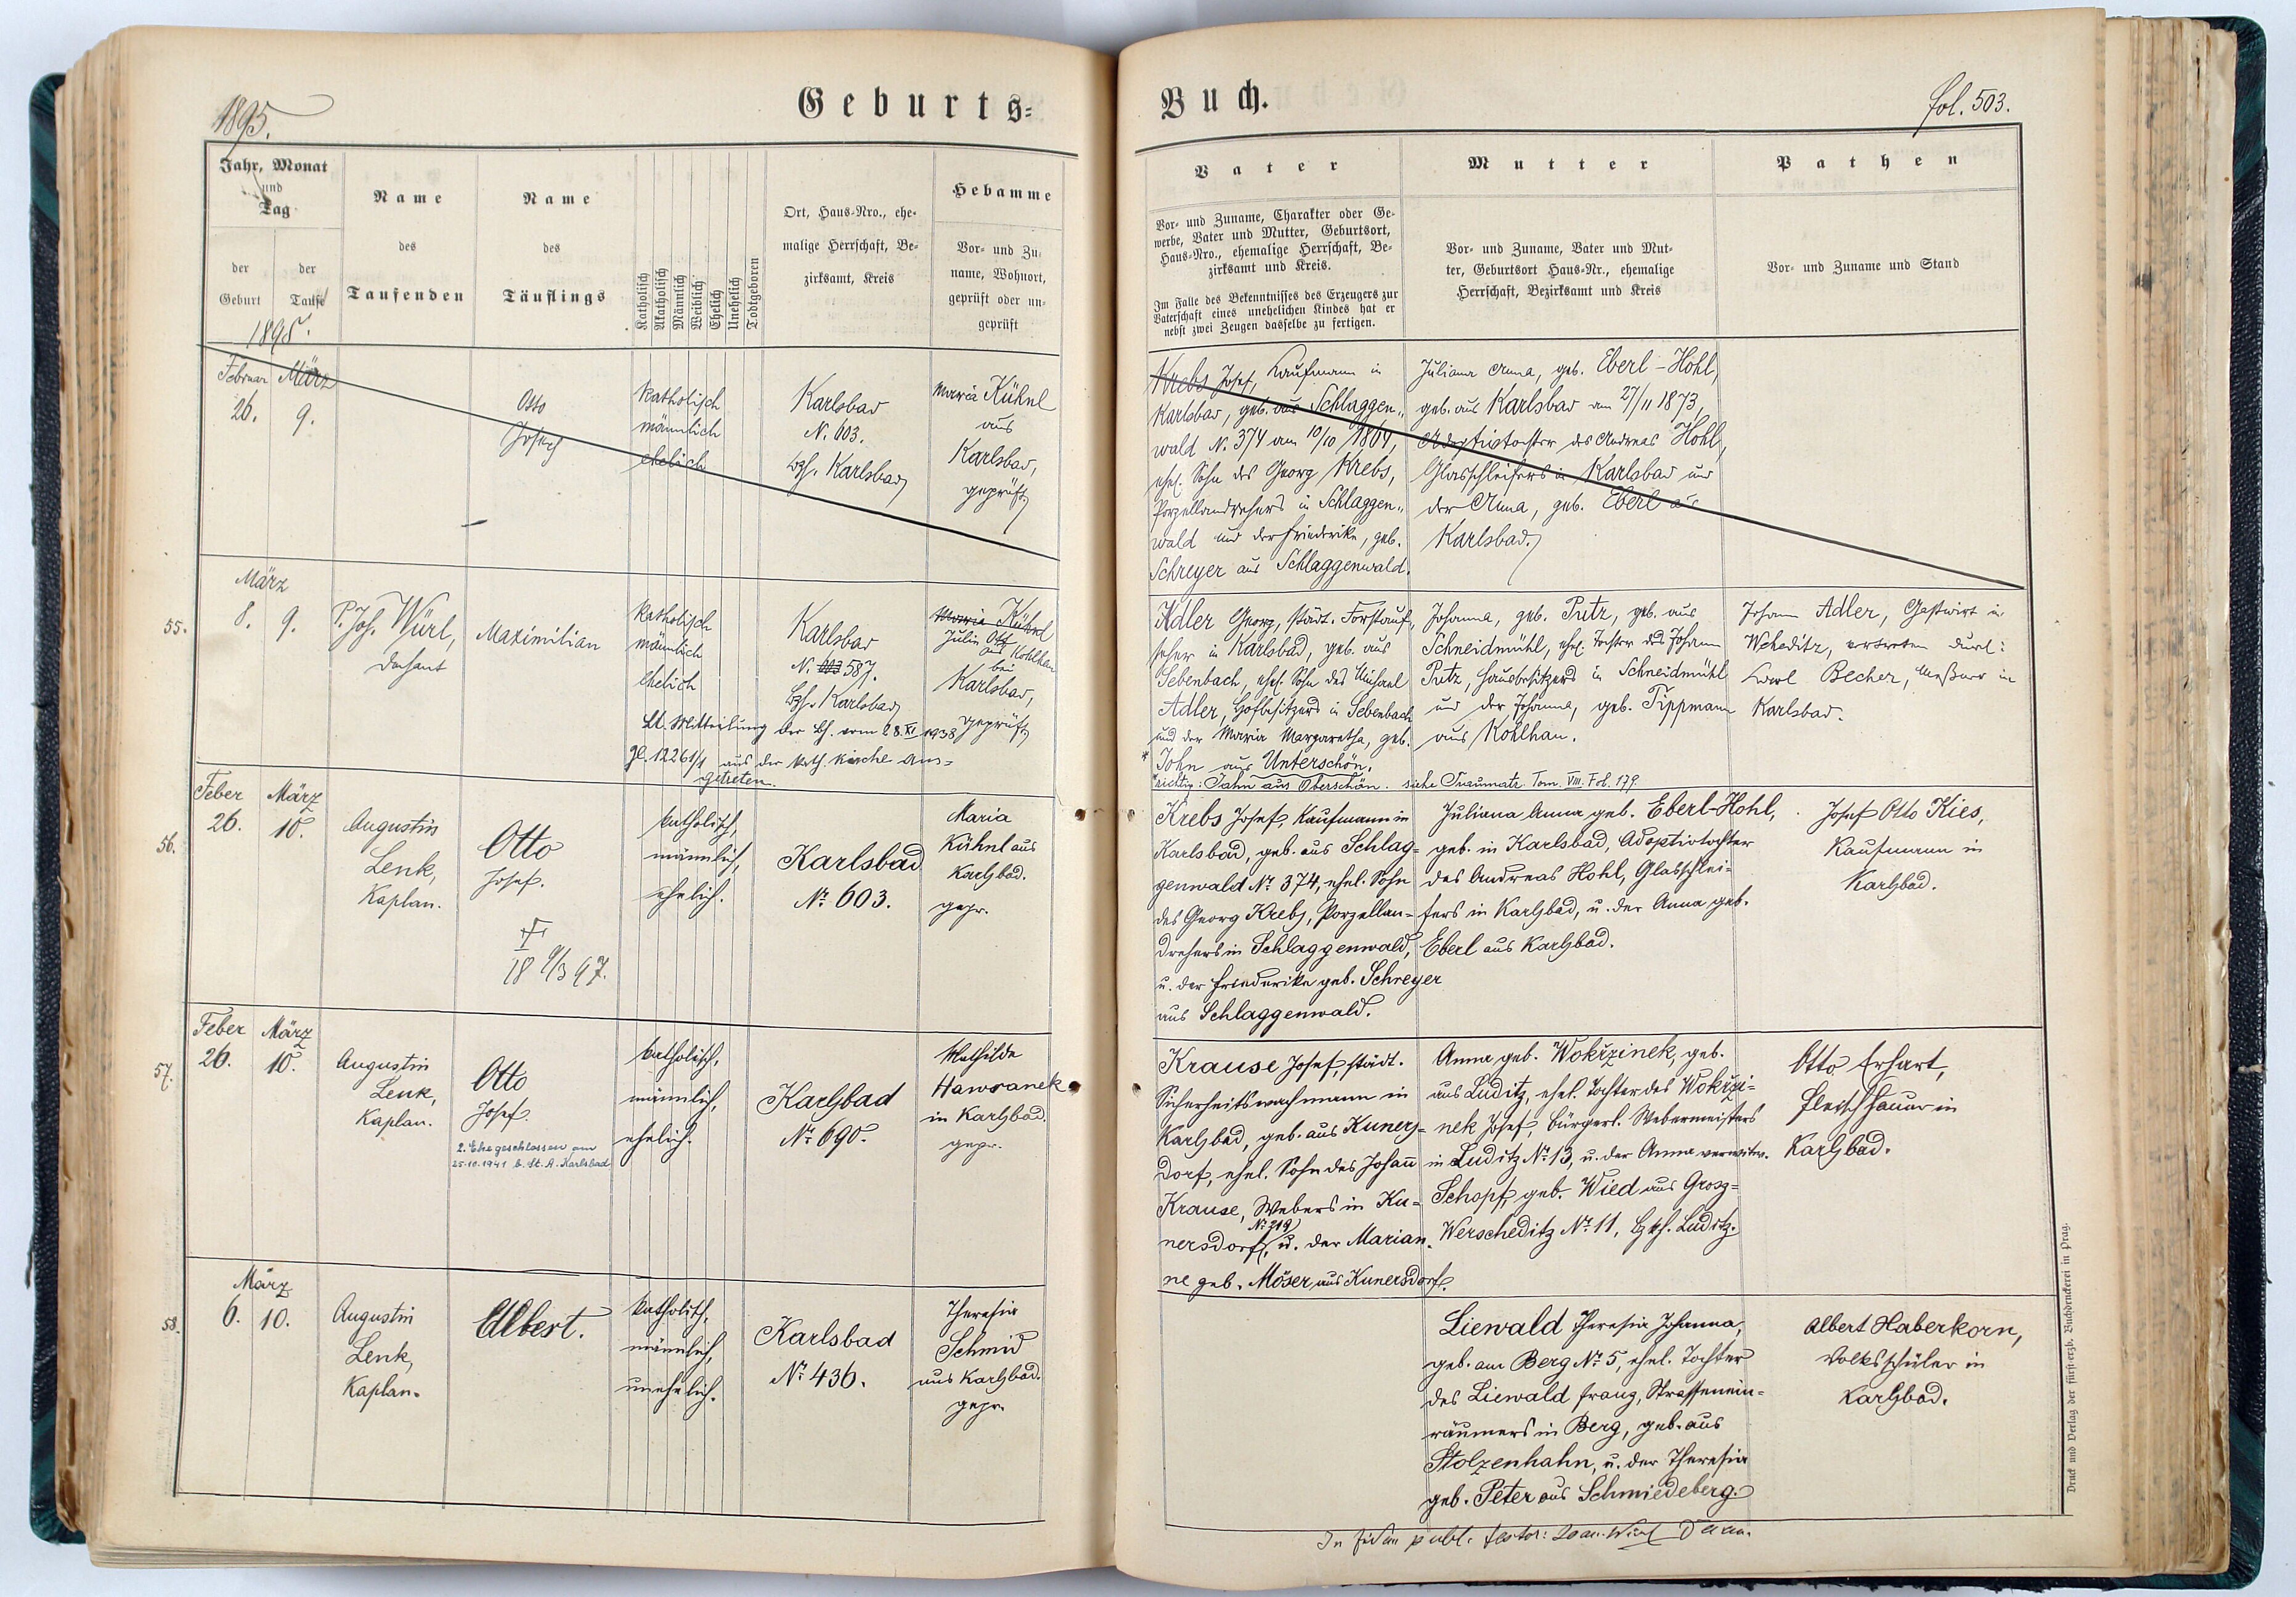 1895.
Geburts=
Jahr, Monat
und
Tag
der
Geburt
der
Taufe
1895.
Name
des
Taufenden
Name
des
Täuflings
Katholisch
Akatholisch
Männlich
Weiblich
Ehelich
Unehelich
Todtgeboren
Ort, Haus-Nro., ehe-
malige Herrschaft, Be-
zirksamt, Kreis
Hebamme
Vor- und Zu-
name, Wohnort,
geprüft oder un-
geprüft
Februar
26.
März
9.
Otto
Joseph
katholisch
männlich
ehelich
Karlsbad
N. 603.
Bzh. Karlsbad
Maria Kühnl
aus
Karlsbad,
geprüft
55.
März
8.
9.
P. Joh. Würl,
Dechant
Maximilian
katholisch
männlich
ehelich
Karlsbad
N. 603 587.
Bzh. Karlsbad
Maria Kühnl
Julie Ott
aus Kohlhau
bei
Karlsbad,
geprüft
Lt. Mitteilung der Bh. vom 28.XI 1938
Zl. 12261/1 aus der kath. Kirche aus-
getreten.
56.
Feber
26.
März
10.
Augustin
Lenk,
Kaplan.
Otto
Josef.
I
18 9/3 97.
katholisch,
männlich,
ehelich.
Karlsbad
No. 603.
Maria
Kühnl aus
Karlsbad.
gepr.
57.
Feber
26.
März
10.
Augustin
Lenk,
Kaplan.
Otto
Josef.
2. Ehe geschlossen am
25.10.1941 b. St. A. Karlsbad
katholisch,
männlich,
ehelich.
Karlsbad
No. 690.
Mathilde
Hawranek
in Karlsbad.
gepr.
58.
März
6.
10.
Augustin
Lenk,
Kaplan.
Albert.
katholisch,
männlich,
unehelich.
Karlsbad
No. 436.
Theresia
Schmid
aus Karlsbad.
gepr.
Buch.
fol. 503.
Vater
Vor- und Zuname, Charakter oder Ge-
werbe, Vater und Mutter, Geburtsort,
Haus-Nro., ehemalige Herrschaft, Be-
zirksamt und Kreis.
Im Falle des Bekenntnisses des Erzeugers zur
Vaterschaft eines unehelichen Kindes hat er
nebst zwei Zeugen dasselbe zu fertigen.
Mutter
Vor- und Zuname, Vater und Mut-
ter, Geburtsort Haus-Nr., ehemalige
Herrschaft, Bezirksamt und Kreis
Pathen
Vor- und Zuname und Stand
Krebs Josef, Kaufmann in
Karlsbad, geb. aus Schlaggen„
wald N. 374 am 10/10 1864,
ehel. Sohn des Georg Krebs,
Porzellandrehers in Schlaggen„
wald und der Friederike, geb.
Schreyer aus Schlaggenwald.
Juliana Anna, geb. Eberl-Hohl,
geb. aus Karlsbad am 27/11 1873,
Adoptivtochter des Andreas Hohl,
Glasschleifers in Karlsbad und
der Anna, geb. Eberl aus
Karlsbad.
Adler Georg, städt. Forstauf„
seher in Karlsbad, geb. aus
Sebenbach, ehel. Sohn des Michael
Adler, Hofbesitzers in Sebenbach
und der Maria Margaretha, geb.
* John aus Unterschön.
* richtig: Jahn aus Oberschön. siehe Traumatr. Tom. VIII. Fol. 179.
Johanna, geb. Putz, geb. aus
Schneidmühl, ehel. Tochter des Johann
Putz, Hausbesitzers in Schneidmühl
und der Johanna, geb. Tippmann
aus Kohlhau.
Johann Adler, Gastwirt in
Weheditz, vertreten durch:
Karl Becher, Meßner in
Karlsbad.
Krebs Josef, Kaufmann in
Karlsbad, geb. aus Schlag=
genwald No. 374, ehel. Sohn
des Georg Krebs, Porzellan=
drehers in Schlaggenwald,
u. der Friederike geb. Schreyer
aus Schlaggenwald.
Juliana Anna geb. Eberl-Hohl,
geb. in Karlsbad, Adoptivtochter
des Andreas Hohl, Glasschlei=
fers in Karlsbad, u. der Anna geb.
Eberl aus Karlsbad.
Josef Otto Kies,
Kaufmann in
Karlsbad.
Krause Josef, städt.
Sicherheitswachmann in
Karlsbad, geb. aus Kuners=
dorf, ehel. Sohn des Johann
Krause, Webers in Ku=
No 219
nersdorf, u. der Marian=
ne geb. Möser aus Kunersdorf.
Anna geb. Wokřzinek, geb.
aus Luditz, ehel. Tochter des Wokřzi=
nek Josef, bürgerl. Webermeisters
in Luditz No. 13, u. der Anna verwitw.
Schopf, geb. Wied aus Grosz=
Werscheditz No. 11, Bzkh. Luditz.
Otto Erhart,
Fleischhauer in
Karlsbad.
Liewald Theresia Johanna,
geb. am Berg No. 5, ehel. Tochter
des Liewald Franz, Strassenein=
räumers in Berg, geb. aus
Stolzenhahn, u. der Theresia
geb. Peter aus Schmiedeberg.
Albert Haberkorn,
Volksschüler in
Karlsbad.
In fidem publ. testor: Joan. Würl Decan.
Druck und Verlag der fürst-erzb. Buchdruckerei in Prag.